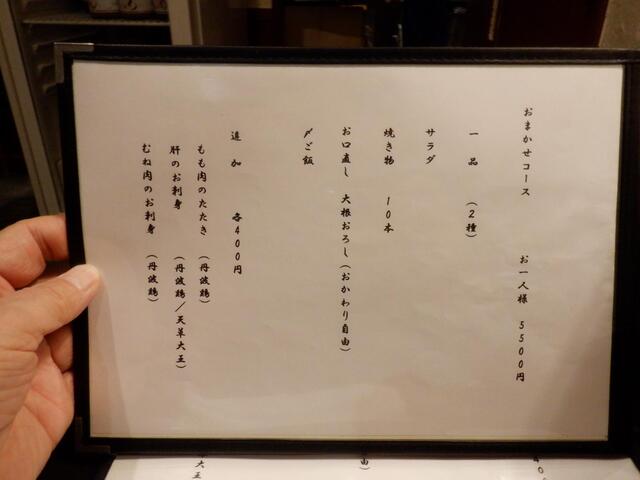 おまかせコース　お一人様　5500円
一品　(2種)
サラダ
焼き物　10本
お口直し　大根おろし(おかわり自由)
〆ご飯
追加　各400円
もも肉のたたき　(丹波鶏)
肝のお刺身　(丹波鶏/天草大王)
むね肉のお刺身　(丹波鶏)
40
由)
大王